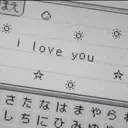 まえ
i love you
さたなはまやらわ
しちにひみゆり